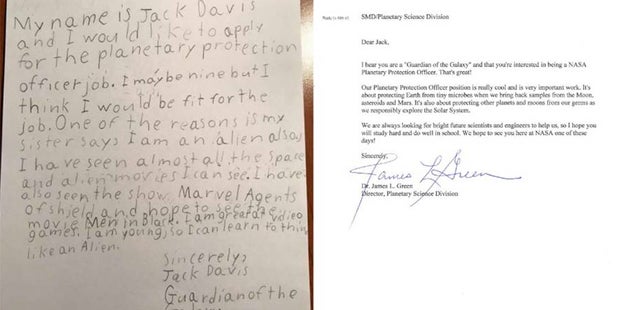 My name is Jack Davis
and I would like to apply
for the planetary protection
officer job. I may be nine but I
think I would be fit for the
job. One of the reasons is my
sister says I am an alien also
I have seen almost all the space
and alien movies I can see. I have
also seen the show Marvel Agents
of shield and hope to see the
movie Men in Black. I am great at video
games. I am young, so I can learn to think
like an Alien.
Sincerely,
Jack Davis
Guardian of the
SMD/Planetary Science Division
Dear Jack,
I hear you are a "Guardian of the Galaxy" and that you're interested in being a NASA
Planetary Protection Officer. That's great!
Our Planetary Protection Officer position is really cool and is very important work. It's
about protecting Earth from tiny microbes when we bring back samples from the Moon,
asteroids and Mars. It's also about protecting other planets and moons from our germs as
we responsibly explore the Solar System.
We are always looking for bright future scientists and engineers to help us, so I hope you
will study hard and do well in school. We hope to see you here at NASA one of these
days!
Sincerely,
James L Green
Dr. James L. Green
Director, Planetary Science Division